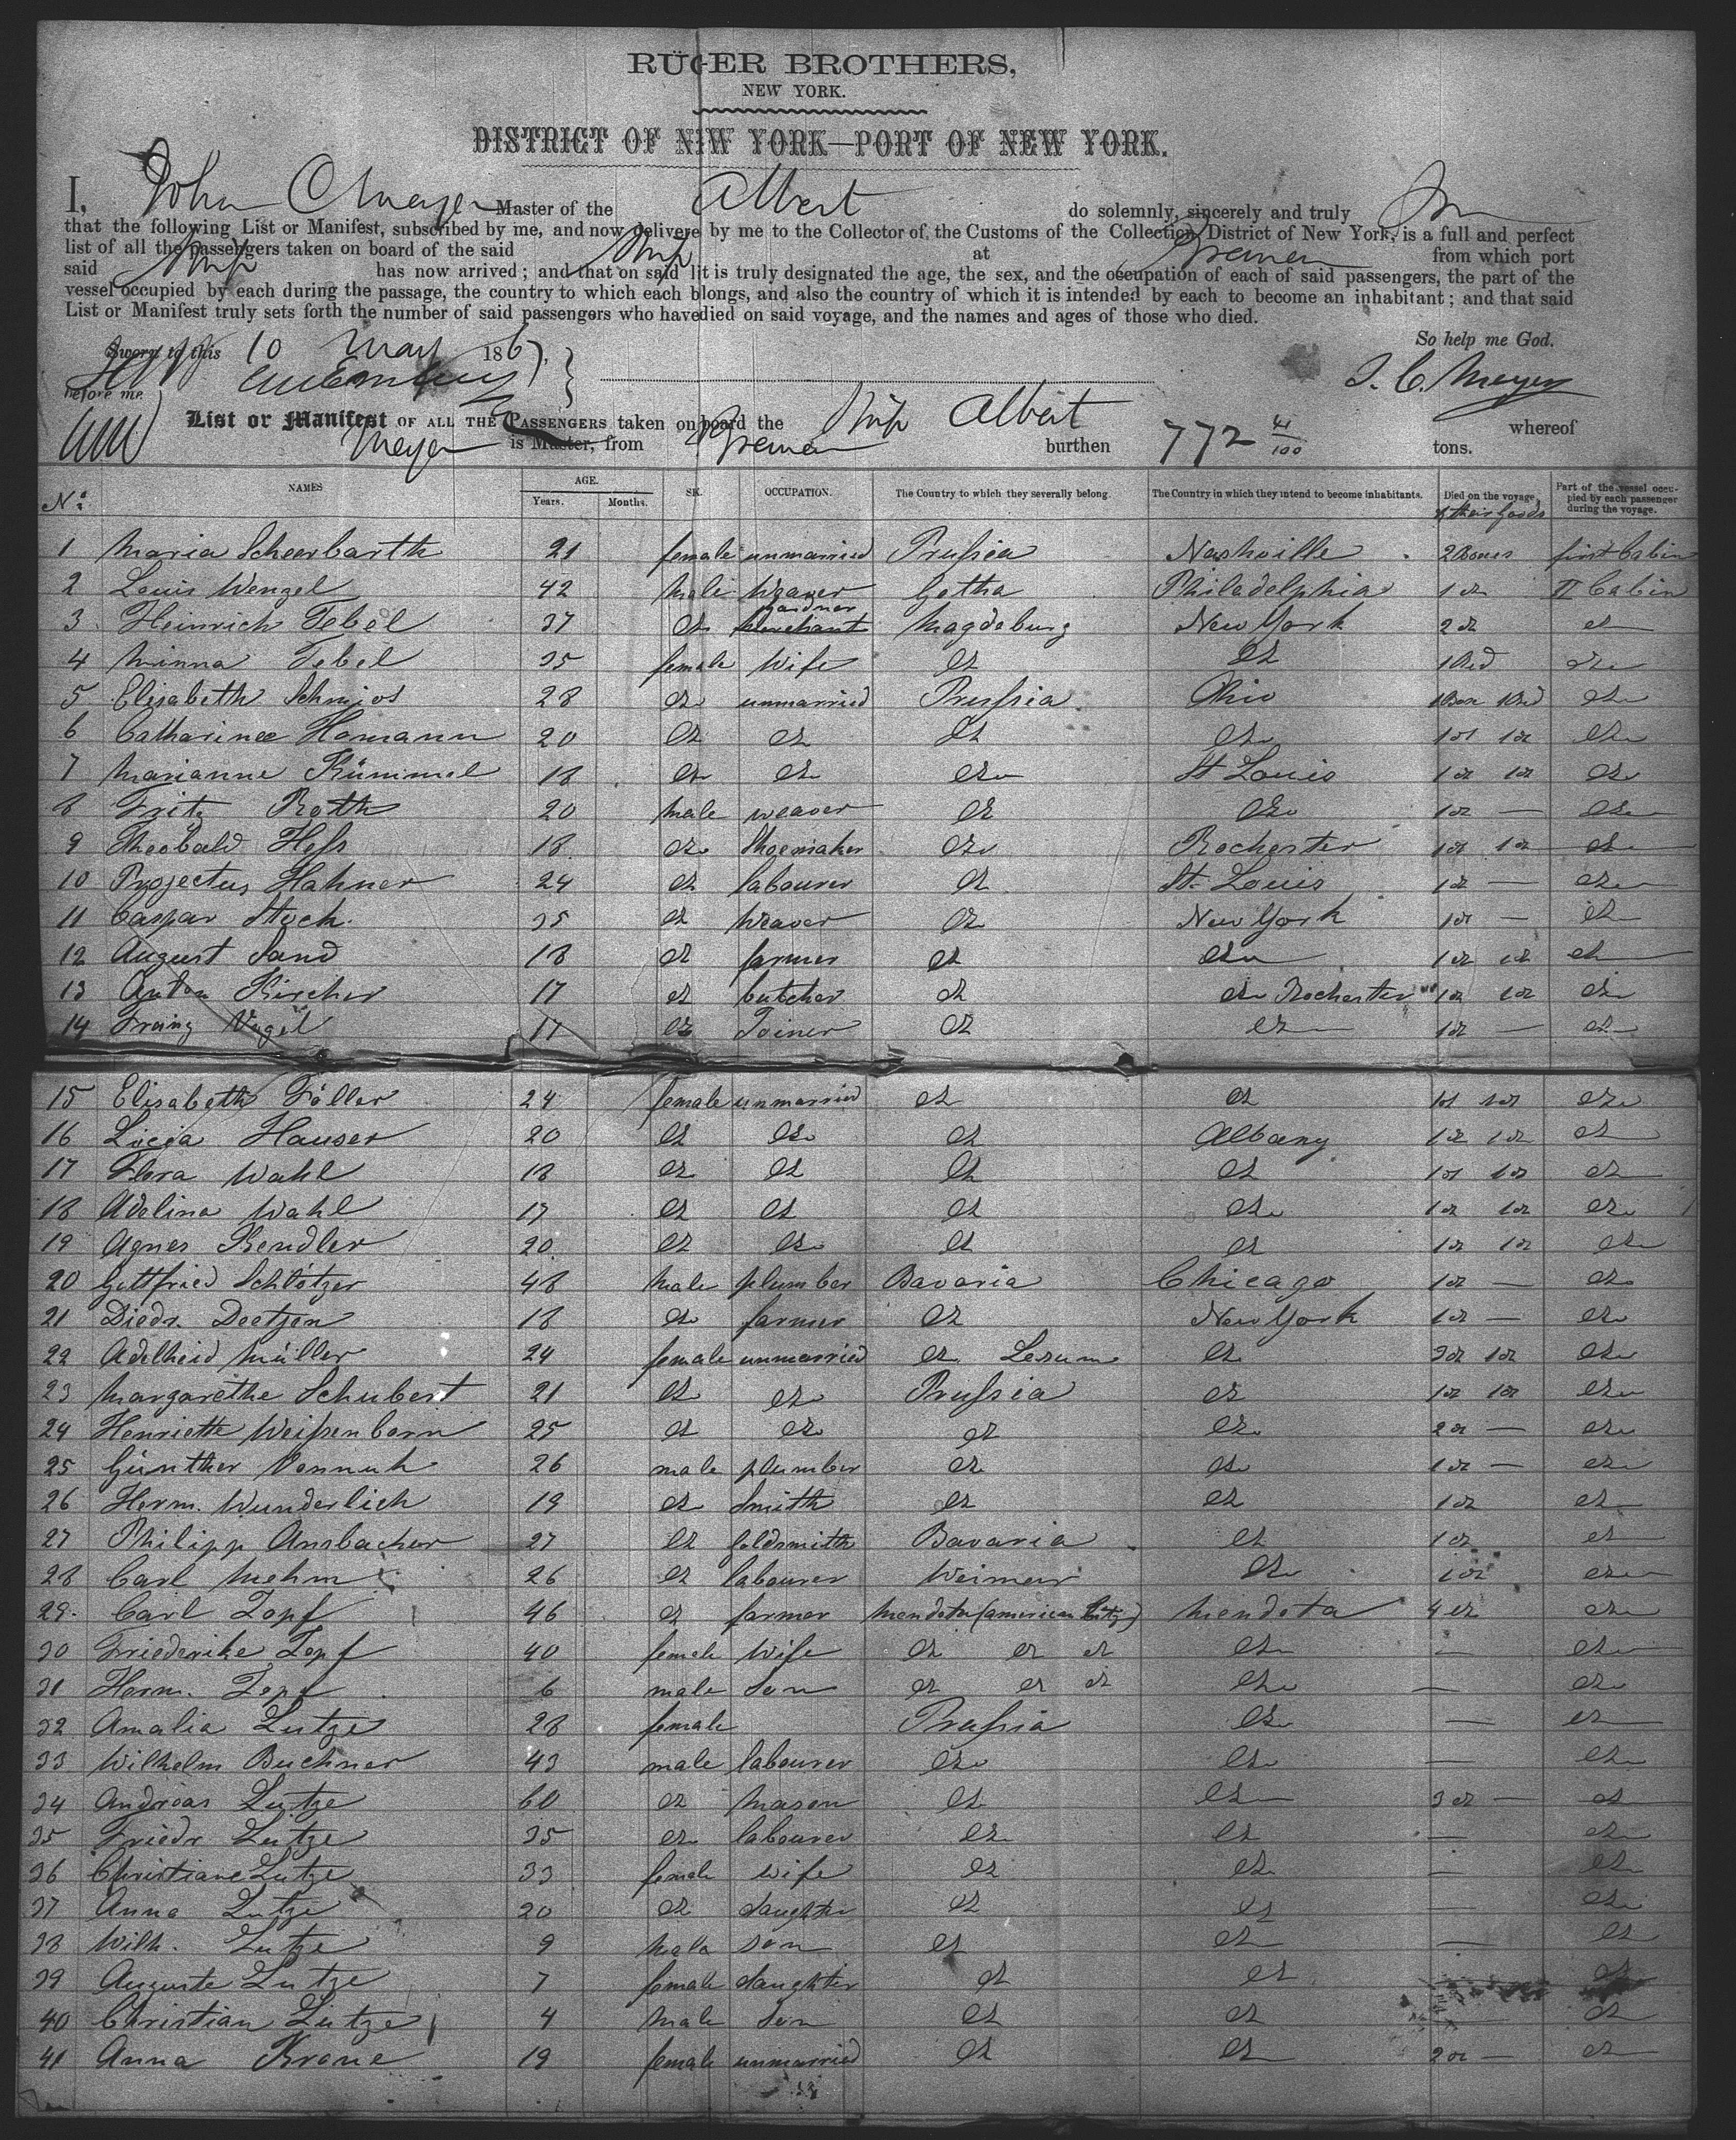 RÜGER BROTHERS,
NEW YORK.
DISTRICT OF NEW YORK—PORT OF NEW YORK.
I, John C Meyer Master of the Albert do solemnly, sincerely and truly
that the following List or Manifest, subscribed by me, and now delivere by me to the Collector of, the Customs of the Collection District of New York, is a full and perfect
list of all the passengers taken on board of the said Ship at Bremen from which port
said Ship has now arrived; and that on said lit is truly designated the age, the sex, and the occupation of each of said passengers, the part of the
vessel occupied by each during the passage, the country to which each blongs, and also the country of which it is intended by each to become an inhabitant; and that said
List or Manifest truly sets forth the number of said passengers who havedied on said voyage, and the names and ages of those who died.
So help me God.
Sworn to this 10 May 1867,
J. C. Meyer
before me
List or Manifest OF ALL THE PASSENGERS taken on board the Ship Albert whereof
Meyer is Master, from Bremen burthen 772 41/100 tons.
No. NAMES AGE. Years. Months. SE. OCCUPATION. The Country to which they severally belong. The Country in which they intend to become inhabitants. Died on the voyage, & their goods Part of the vessel occupied by each passenger during the voyage.
1 Maria Scheerbarth 21 female unmarried Prußia Nashville 2 Boxes first Cabin
2 Louis Wenzel 42 male Weaver Gotha Philadelphia 1 do II Cabin
3 Heinrich Tebel 37 do gardner Magdeburg New York 2 do do
4 Minna Tebel 35 female Wife do do 1 Bed do
5 Elisabeth 28 do unmarried Prußia Ohio 1 Box 1 Bed do
6 Catharinee Homann 20 do do do do 1 do 1 do do
7 Marianne Kümmel 18 do do do St Louis 1 do 1 do do
8 Fritz Roth 20 male weaver do do 1 do — do
9 Theobald Heß 18 do Shoemaker do Rochester 1 do 1 do do
10 Projectus Hahner 24 do labourer do St. Louis 1 do — do
11 Caspar Stoch 35 do Weaver do New York 1 do — do
12 August Sand 18 do farmer do do 1 do 1 do do
13 Anton Kircher 17 do butcher do do Rochester 1 do 1 do do
14 Franz Vogel 17 do Joiner do do 1 do — do
15 Elisabeth Föller 24 female unmarried do do 1 do 1 do do
16 Hauser 20 do do do Albany 1 do 1 do do
17 Flora Wahl 18 do do do do 1 do 1 do do
18 Adelina Wahl 17 do do do do 1 do 1 do do
19 Agnes Kendler 20 do do do do 1 do 1 do do
20 Gottfried Schlötzer 48 male plumber Bavaria Chicago 1 do — do
21 Diedr. Deetjen 18 do farmer do New York 1 do — do
22 Adelheid Müller 24 female unmarried do Lesum do 3 do 1 do do
23 Margarethe Schubert 21 do do Prußia do 1 do 1 do do
24 Henriette Weißenborn 25 do do do do 2 do — do
25 Günther 26 male plumber do do 1 do — do
26 Herm. Wunderlich 19 do Smith do do 1 do do
27 Philipp Ansbacher 27 do Goldsmith Bavaria do 1 do do
28 Carl Mehm 26 do labourer Weimar do 1 do do
29. Carl Topf 46 do farmer Mendota (american Citz) Mendota 4 do do
30 Friederike Topf 40 female Wife do do do do — do
31 Herm. Topf 6 male Son do do do do — do
32 Amalia Lutze 28 female Prußia do — do
33 Wilhelm Buchner 43 male labourer do do — do
34 Andreas Lutze 60 do Mason do do 3 do — do
35 Friedr Lutze 35 do labourer do do — do
36 Christiane Lutze 33 female Wife do do — do
37 Anna Lutze 20 do daughter do do — do
38 Wilh. Lutze 9 male son do do — do
39 Auguste Lutze 7 female daughter do do do
40 Christian Lutze 4 male Son do do do
41 Anna Krone 19 female unmarried do do 2 do — do